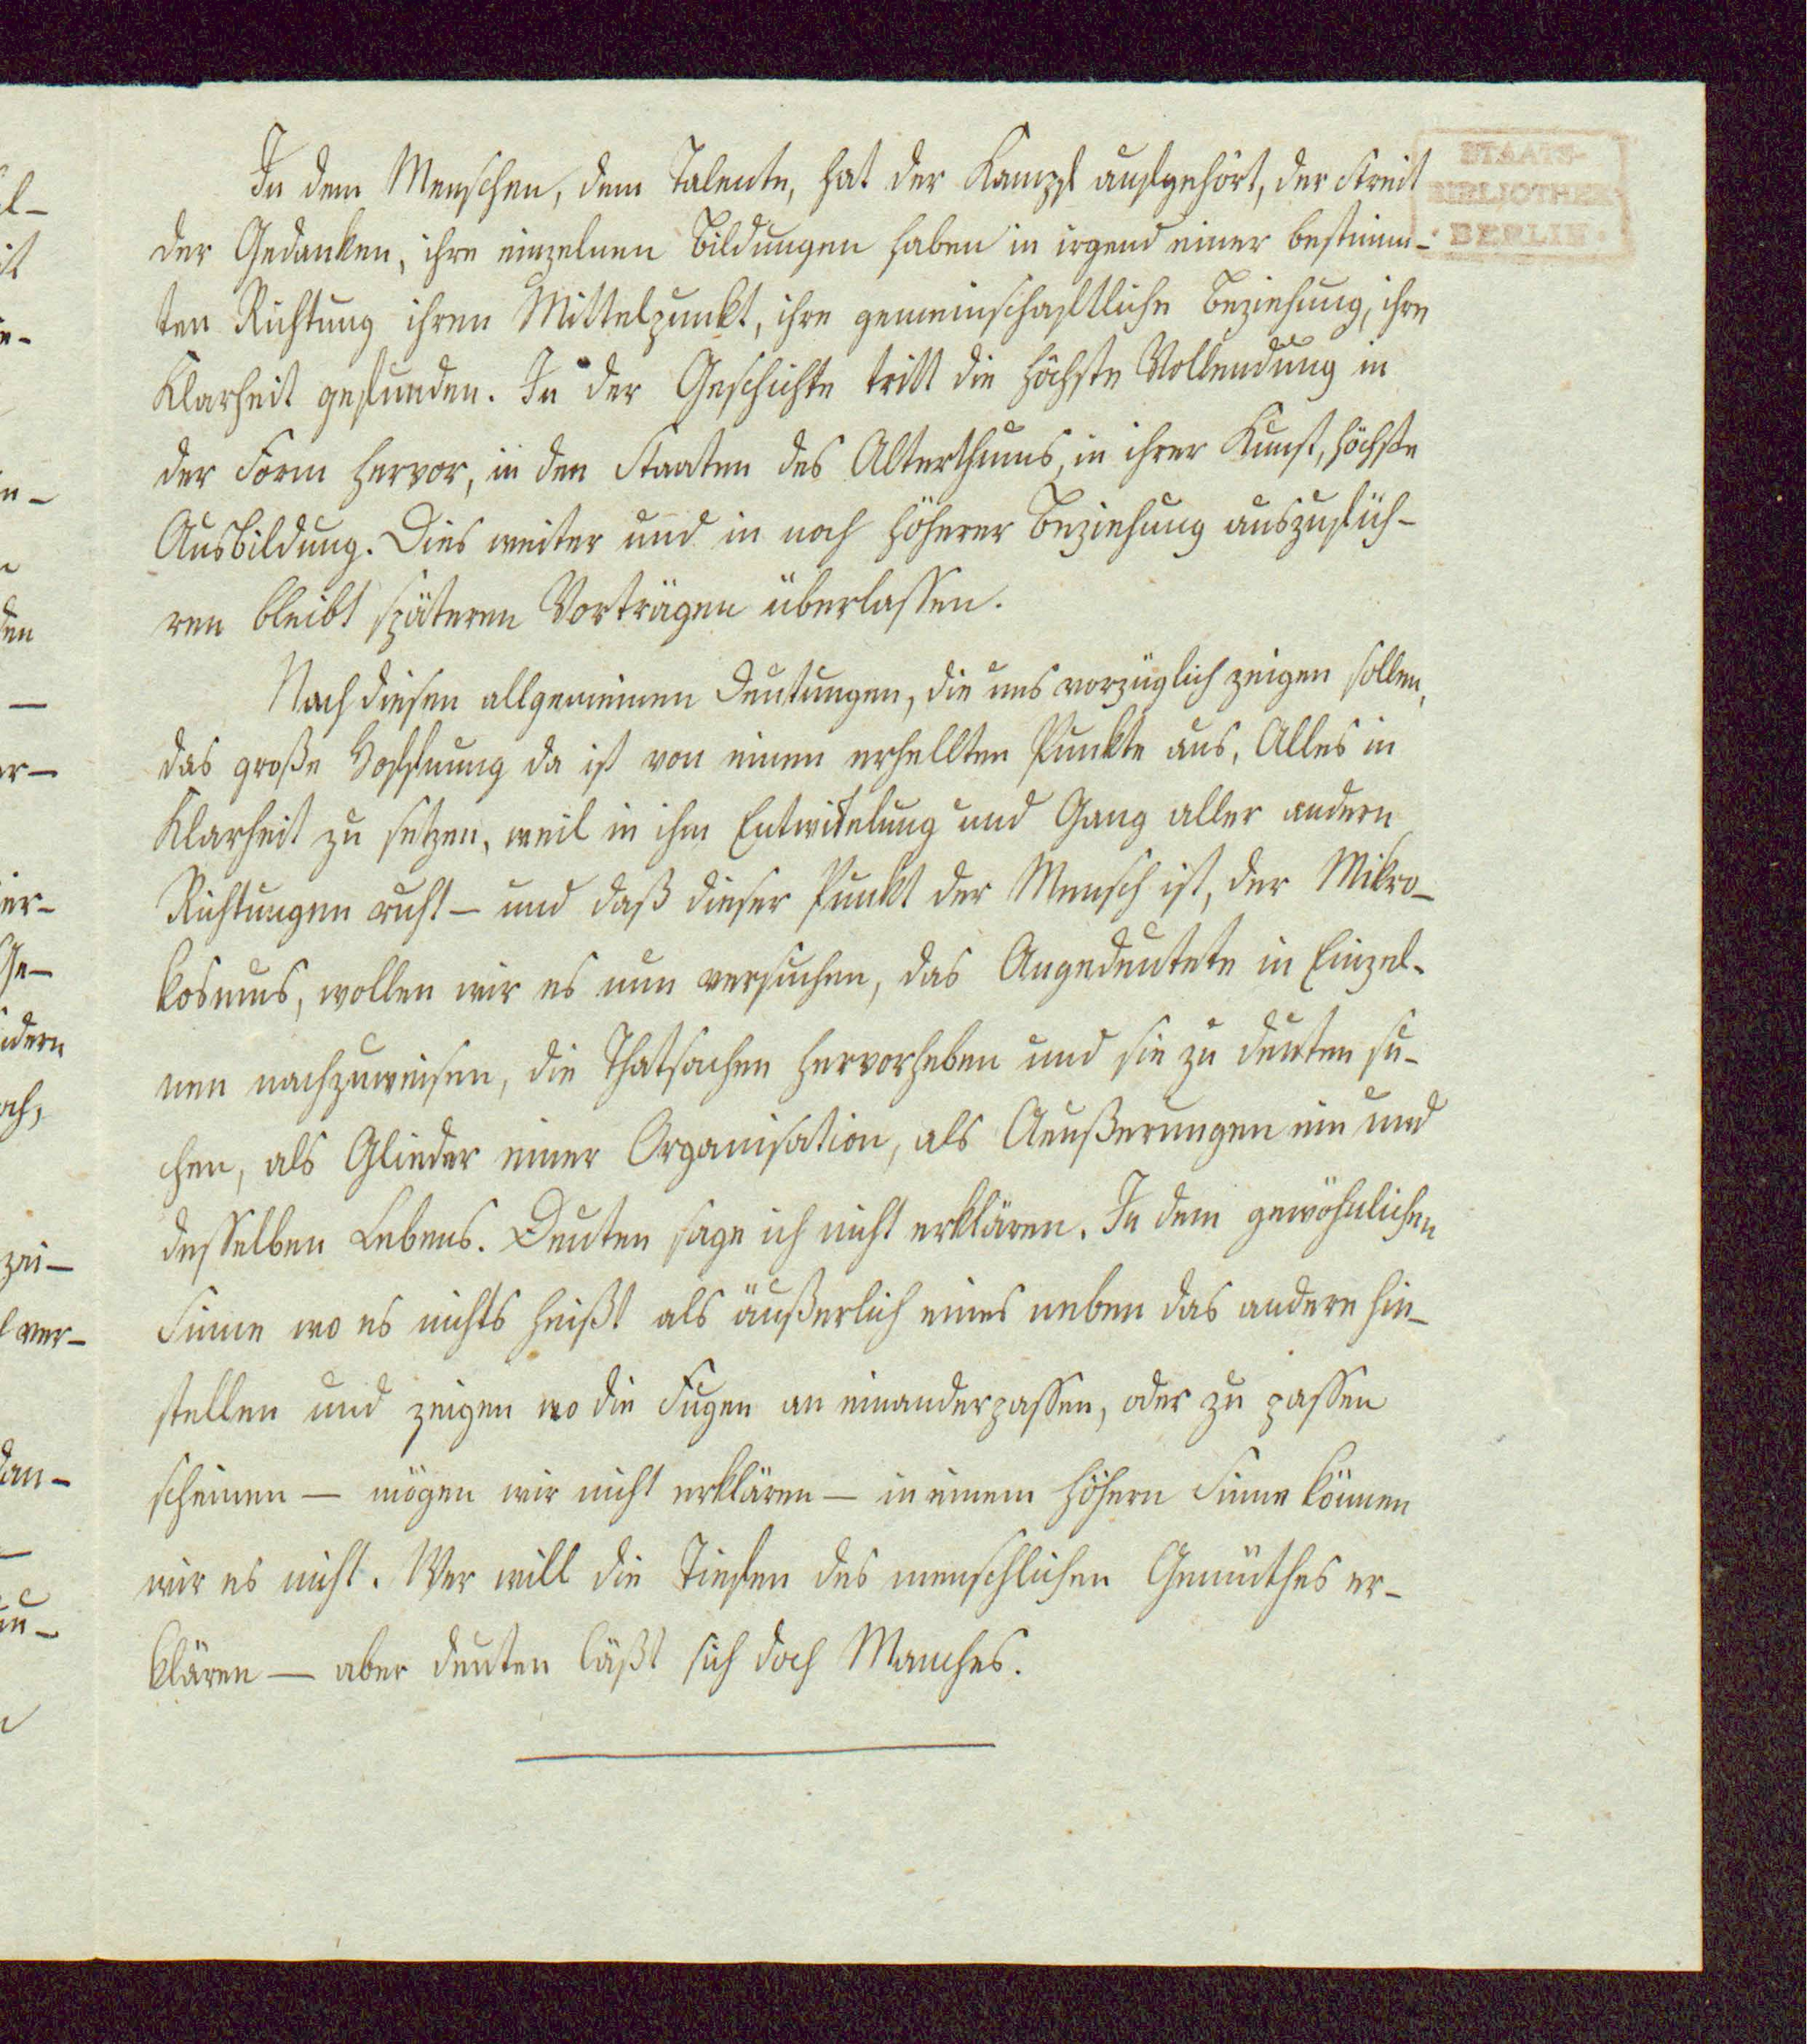 In dem Menschen, dem Talente, hat der Kampf aufgehört, der Streit
der Gedanken, ihre einzelnen Bildungen haben in irgend einer bestimm-
ten Richtung ihren Mittelpunkt, ihre gemeinschaftliche Beziehung, ihre
Klarheit gefunden. In der Geschichte tritt die höchste Vollendung in
der Form hervor, in den Staaten des Alterthums, in ihrer Kunst, höchste
Ausbildung. Dies weiter und in noch höherer Beziehung auszufüh-
ren bleibt späteren Vorträgen überlassen.
Nach diesen allgemeinen Deutungen, die uns vorzüglich zeigen sollen,
das große Hoffnung da ist von einen erhellten Punkte aus, Alles in
Klarheit zu setzen, weil in ihm Entwikelung und Gang aller andern
Richtungen ruht – und daß dieser Punkt der Mensch ist, der Mikro-
kosmus, wollen wir es nun versuchen, das Angedeutete in Einzel-
nen nachzuweisen, die Thatsachen hervorheben und sie zu deuten su-
chen, als Glieder einer Organisation, als Aeußerungen ein und
desselben Lebens. Deuten sage ich nicht erklären. In dem gewöhnlichen
Sinne wo es nichts heißt als äußerlich eines neben das andere hin-
stellen und zeigen wo die Fugen an einanderpassen, oder zu passen
scheinen – mögen wir nicht erklären – in einem höhern Sinne können
wir es nicht. Wer will die Tiefen des menschlichen Gemüthes er-
klären – aber deuten läßt sich doch Manches.
STAATS-
BIBLIOTHEK
· BERLIN ·